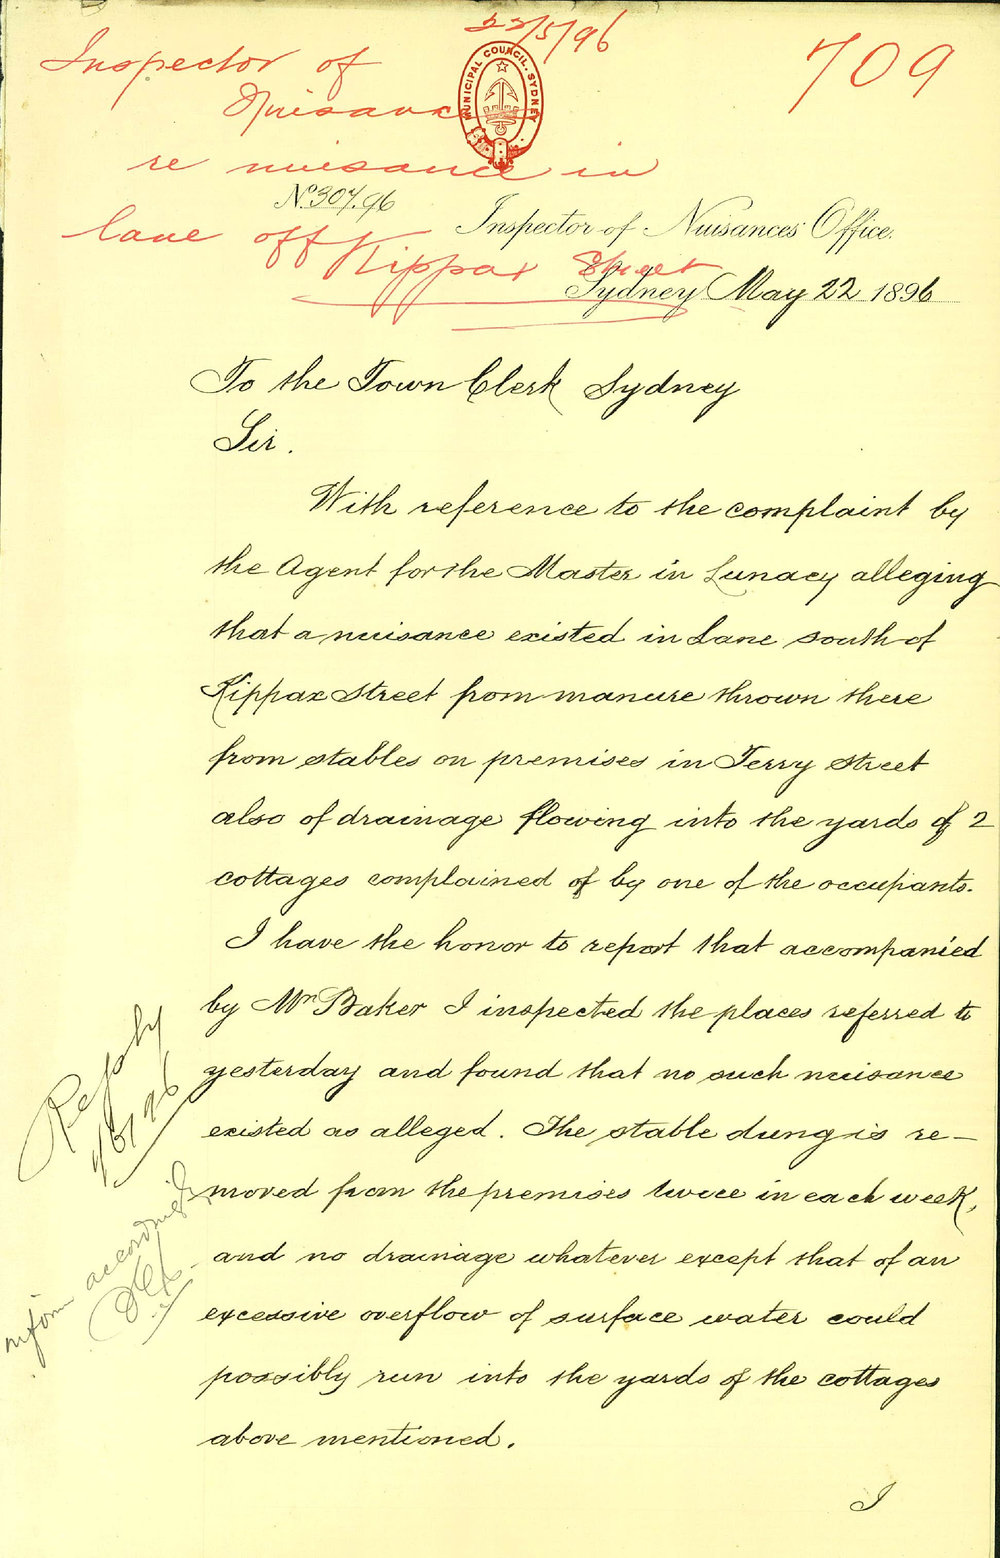 22/5/96
709
Inspector of
Nuisance
re nuisance in
lane off Kippax Street
MUNICIPAL COUNCIL. SYDNEY
No. 307.96
Inspector of Nuisances' Office.
Sydney May 22 1896
To the Town Clerk Sydney
Sir.
With reference to the complaint by
the Agent for the Master in Lunacy alleging
that a nuisance existed in Lane south of
Kippax Street from manure thrown there
from stables on premises in Terry Street
also of drainage flowing into the yards of 2
cottages complained of by one of the occupants.
I have the honor to report that accompanied
by Mr Baker I inspected the places referred to
yesterday and found that no such nuisance
existed as alleged. The stable dung is re-
moved from the premises twice in each week,
and no drainage whatever except that of an
excessive overflow of surface water could
possibly run into the yards of the cottages
above mentioned.
I
Reply
inform accordingly